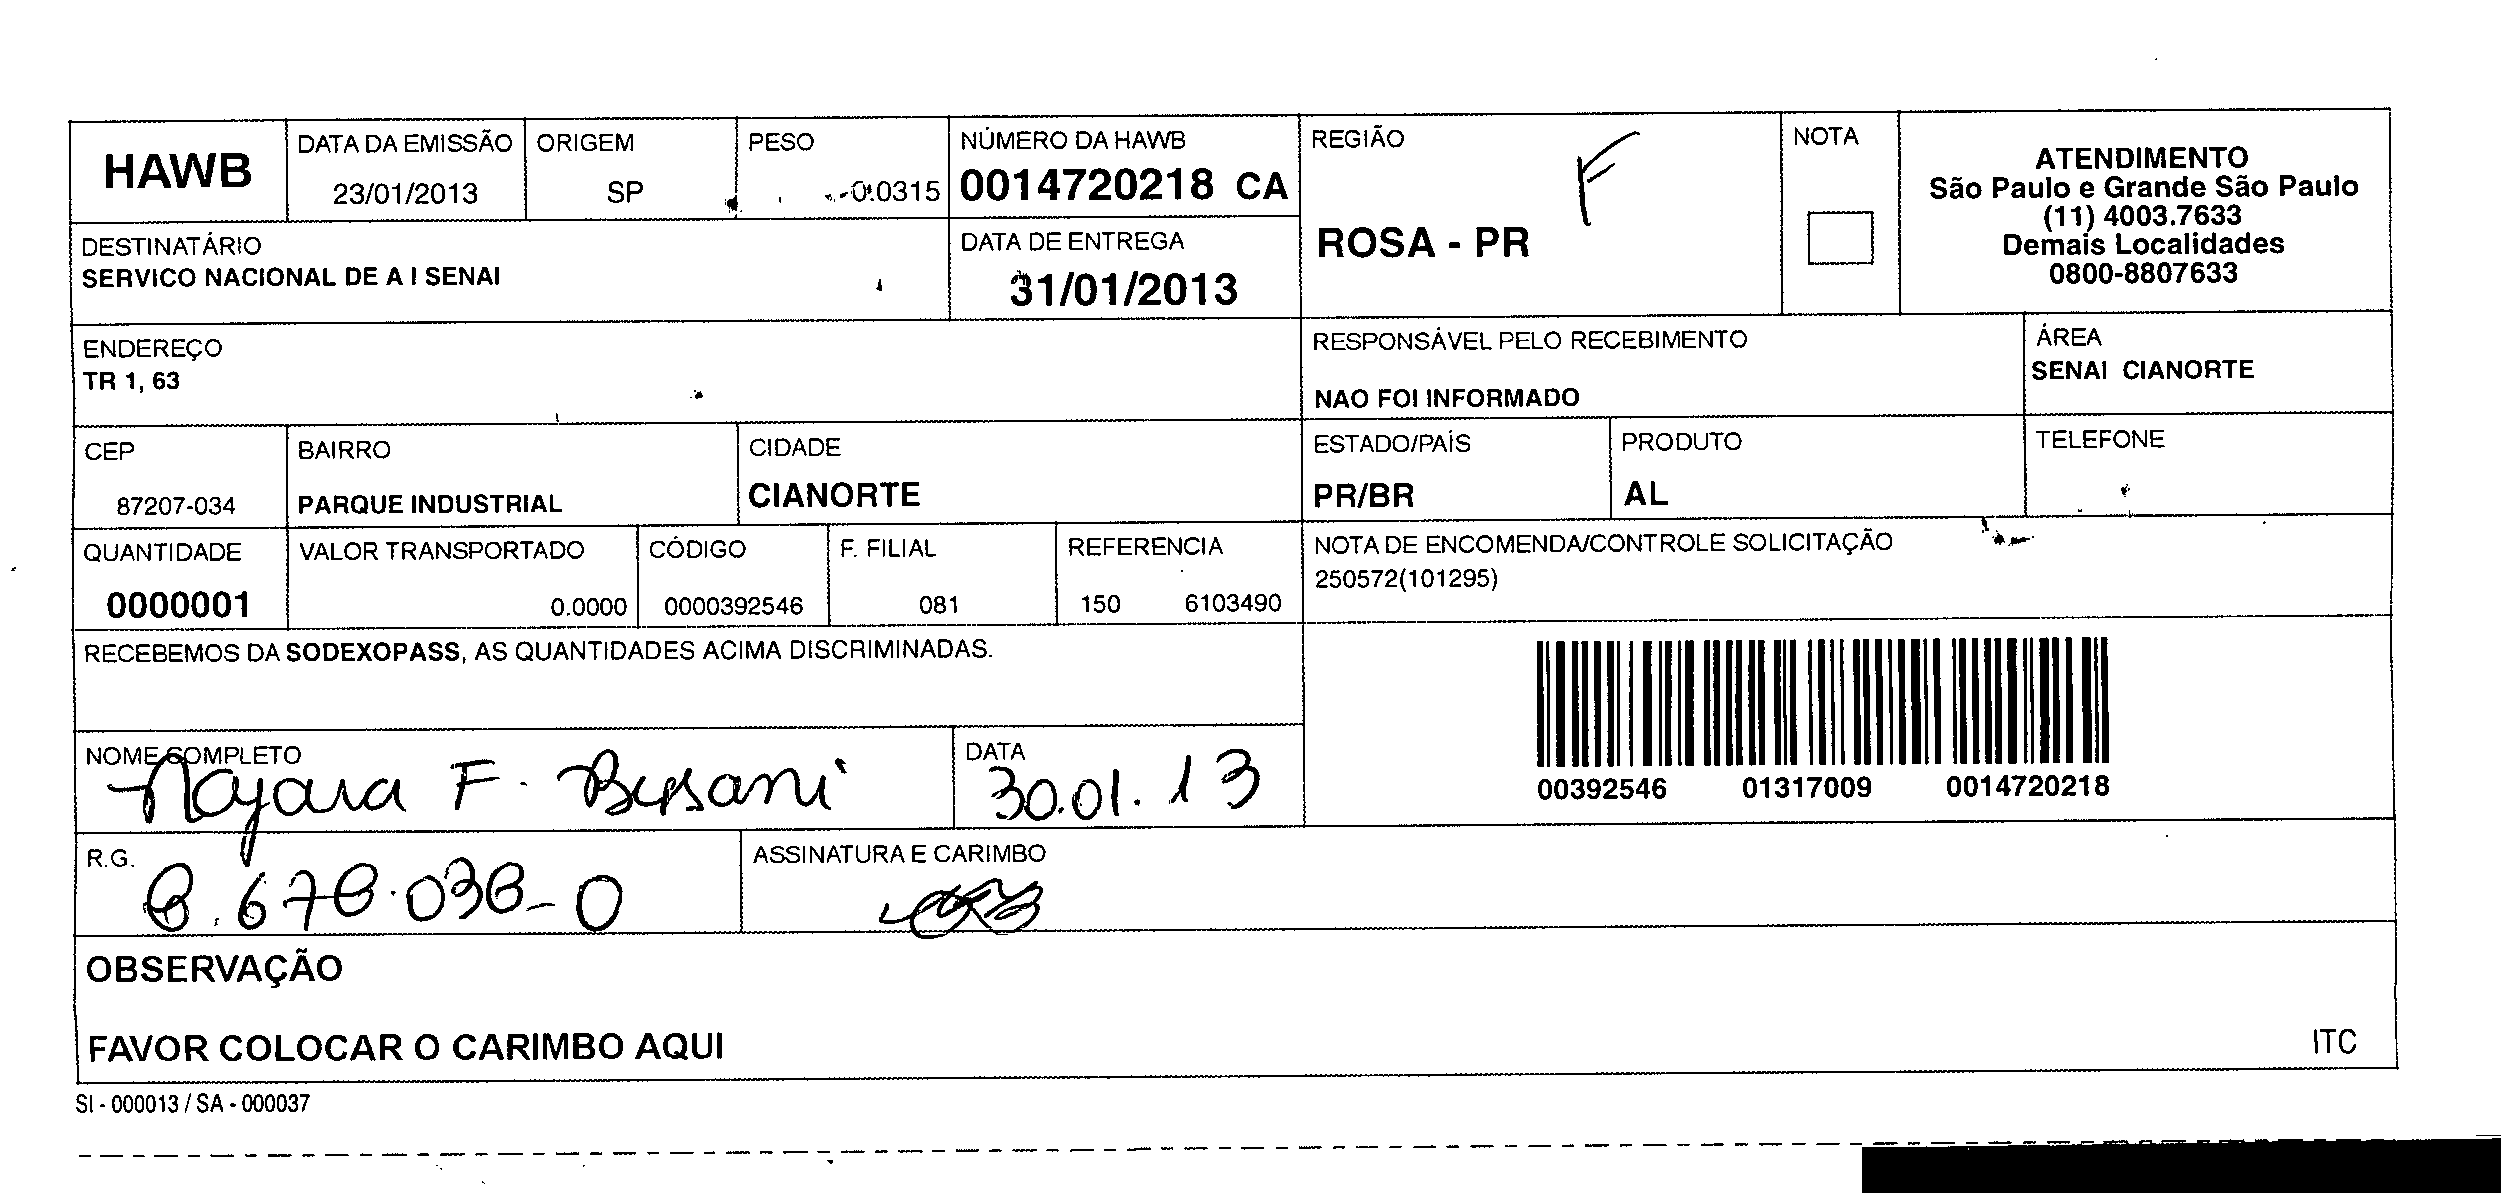 HAWB
DATA DA EMISSÃO
23/01/2013
ORIGEM
SP
PESO
0.0315
NÚMERO DA HAWB
0014720218 CA
REGIÃO
F
ROSA - PR
NOTA
ATENDIMENTO
São Paulo e Grande São Paulo
(11) 4003.7633
Demais Localidades
0800-8807633
DESTINATÁRIO
SERVICO NACIONAL DE A I SENAI
DATA DE ENTREGA
31/01/2013
ENDEREÇO
TR 1, 63
RESPONSÁVEL PELO RECEBIMENTO
NAO FOI INFORMADO
ÁREA
SENAI CIANORTE
CEP
87207-034
BAIRRO
PARQUE INDUSTRIAL
CIDADE
CIANORTE
ESTADO/PAÍS
PR/BR
PRODUTO
AL
TELEFONE
QUANTIDADE
0000001
VALOR TRANSPORTADO
0.0000
CÓDIGO
0000392546
F. FILIAL
081
REFERENCIA
150 6103490
NOTA DE ENCOMENDA/CONTROLE SOLICITAÇÃO
250572(101295)
RECEBEMOS DA SODEXOPASS, AS QUANTIDADES ACIMA DISCRIMINADAS.
00392546 01317009 0014720218
NOME COMPLETO
Nayara F.
DATA
30.01.13
R.G.
8.678.038-0
ASSINATURA E CARIMBO
OBSERVAÇÃO
FAVOR COLOCAR O CARIMBO AQUI
ITC
SI - 000013 / SA - 000037